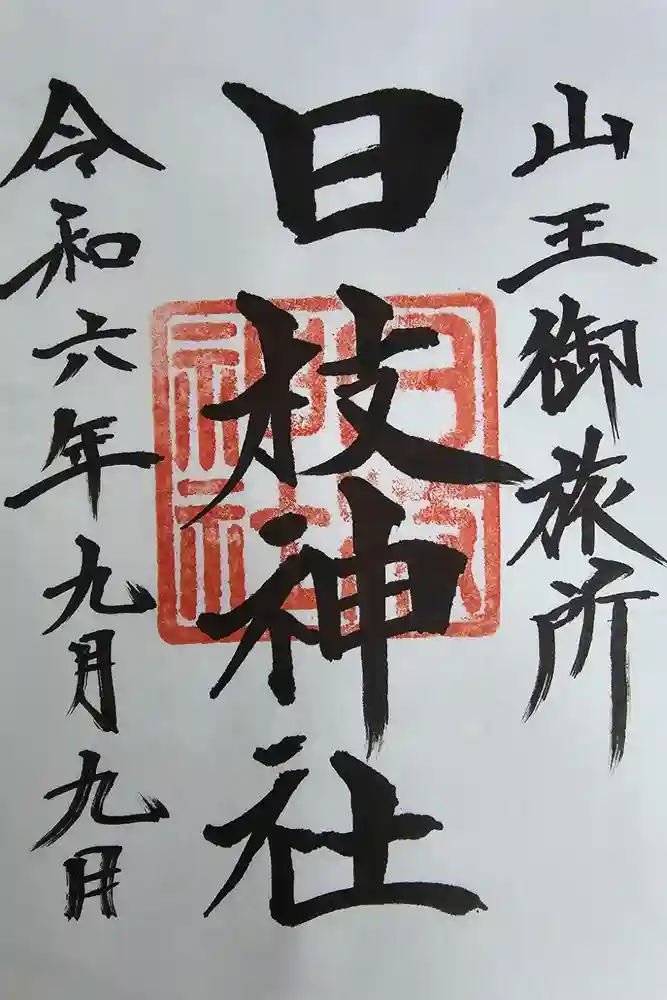 山王御旅所
日枝神社
令和六年九月九日
日枝
神社